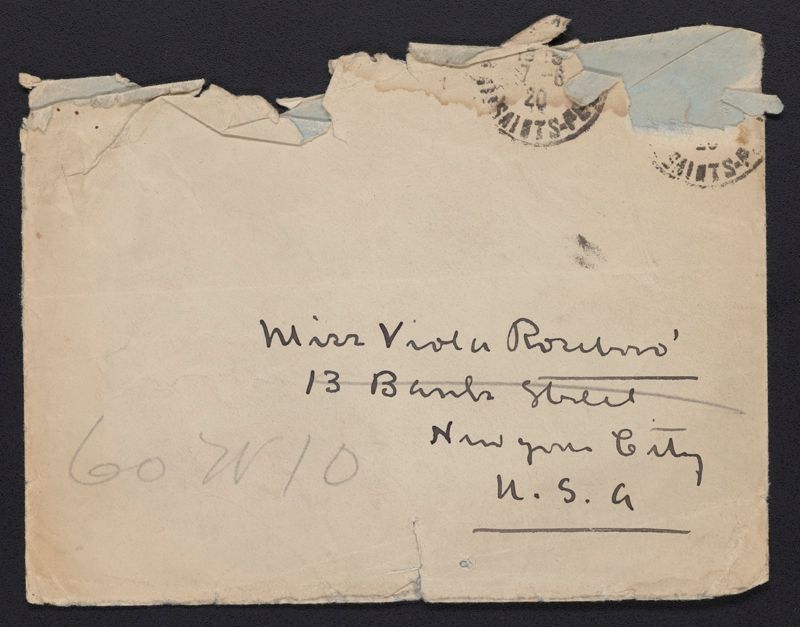 20
SAINTS-PE
SAINTS-P
Miss Viola Roseboro'
13 Bank Street
New York City
U. S. A
60 W 10